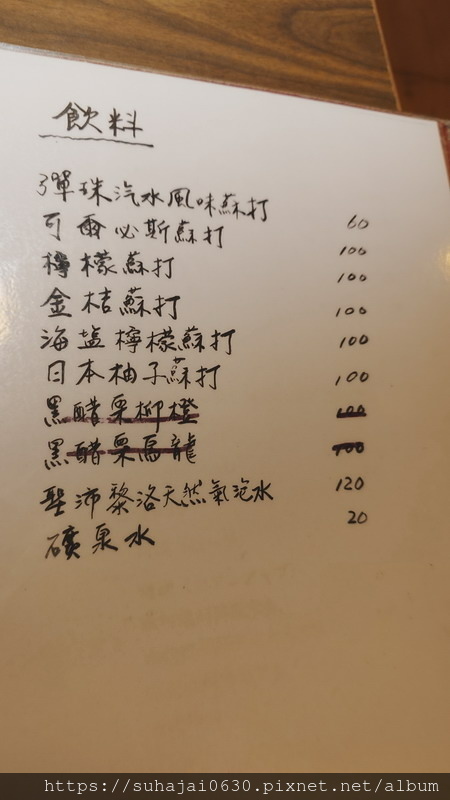 飲料
彈珠汽水風味蘇打 60
可爾必斯蘇打 100
檸檬蘇打 100
金桔蘇打 100
海塩檸檬蘇打 100
日本柚子蘇打 100
黑醋栗柳橙 100
黑醋栗烏龍 100
聖沛黎洛天然氣泡水 120
礦泉水 20
https://suhajai0630.pixnet.net/album